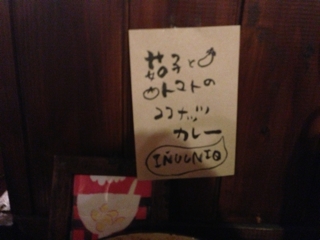 茄子と
トマトの
ココナッツ
カレー